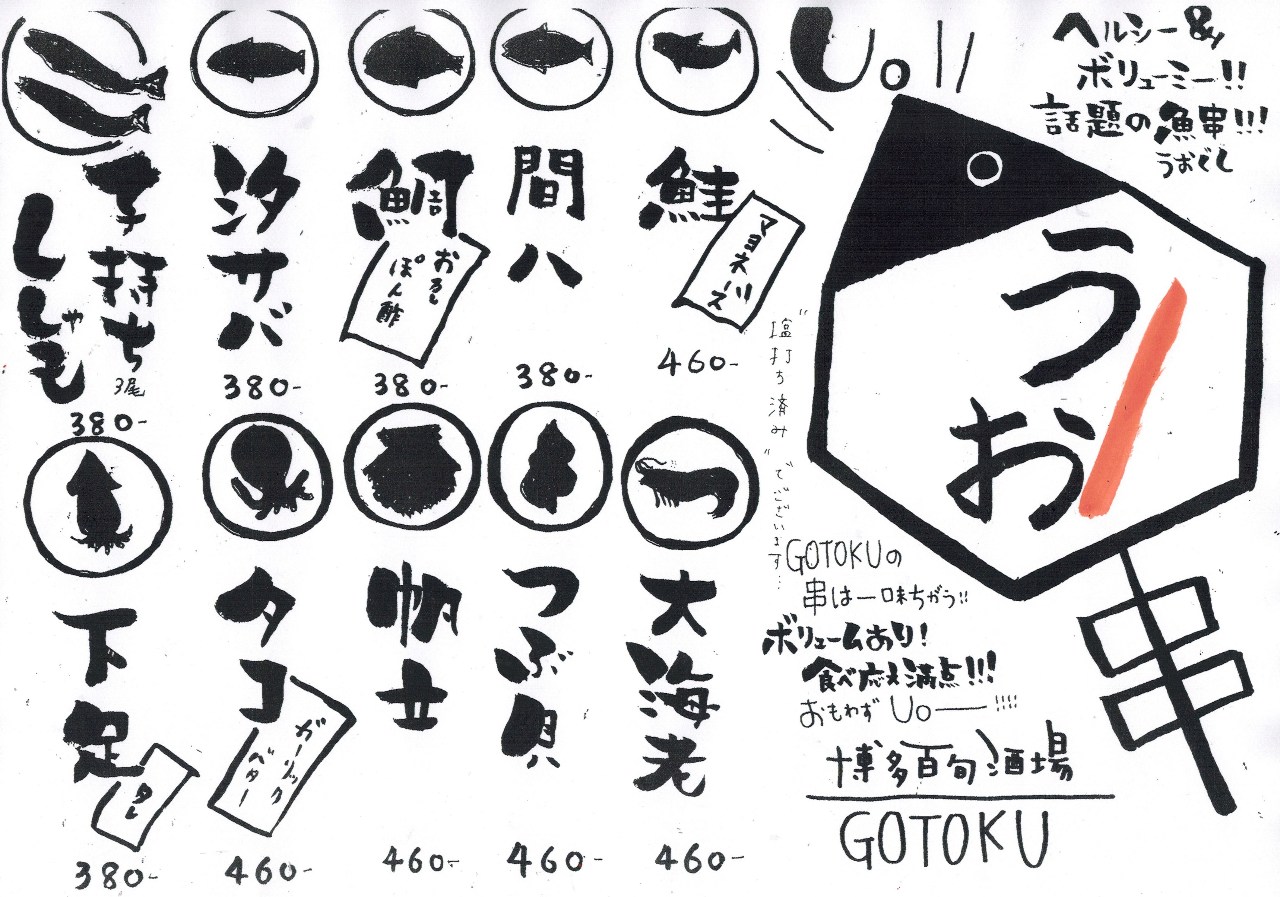 Uo!!
ヘルシー&
ボリューミー!!
話題の魚串!!!
うおぐし
うお
串
鮭
マヨネーズ
460-
間八
380-
鯛
おろし
ぽん酢
380-
汐サバ
380-
子持ち
ししゃも
3尾
380-
大海老
460-
つぶ貝
460-
帆立
460-
タコ
ガーリック
バター
460-
下足
タレ
380-
"塩打ち済み"でございます…
GOTOKUの
串は一味ちがう!!
ボリュームあり!
食べ応え満点!!!
おもわずUo―!!!!
博多百旬酒場
GOTOKU